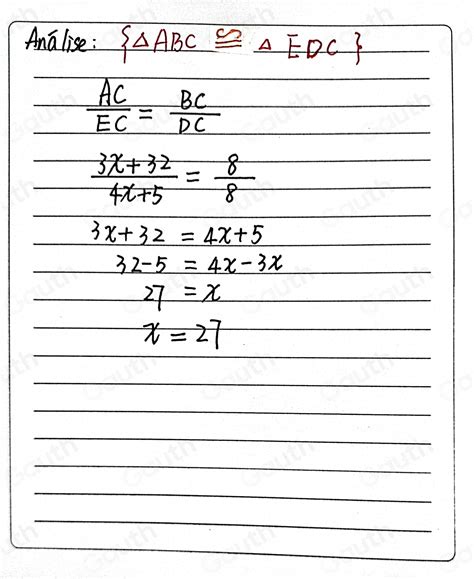 Análise: {△ABC ≌ △EDC}
AC/EC = BC/DC
3x+32/4x+5 = 8/8
3x+32 = 4x+5
32-5 = 4x-3x
27 = x
x = 27